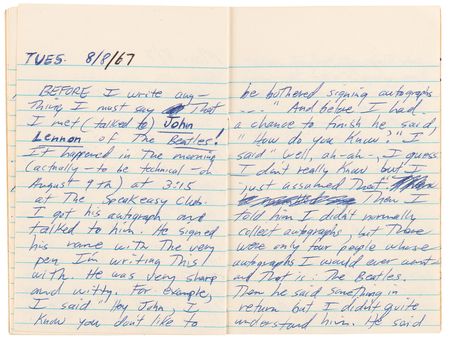 TUES. 8/8/67
BEFORE I write any-
thing I must say that
I met (talked to) John
Lennon of The Beatles!
It happened in the morning
(actually - to be technical - on
August 9th) at 3:15
at The Speakeasy Club.
I got his autograph and
talked to him. He signed
his name with the very
pen I'm writing this
with. He was very sharp
and witty. For example,
I said "Hey John, I
know you don't like to
be bothered signing autographs
---." And before I had
a chance to finish he said,
"How do you know?" I
said "Well, ah-ah-, I guess
I don't really know but I
just assumed that". Then I
told him I didn't normally
collect autographs, but there
were only four people whose
autographs I would ever want
and that is: The Beatles.
Then he said something in
return but I didn't quite
understand him. He said